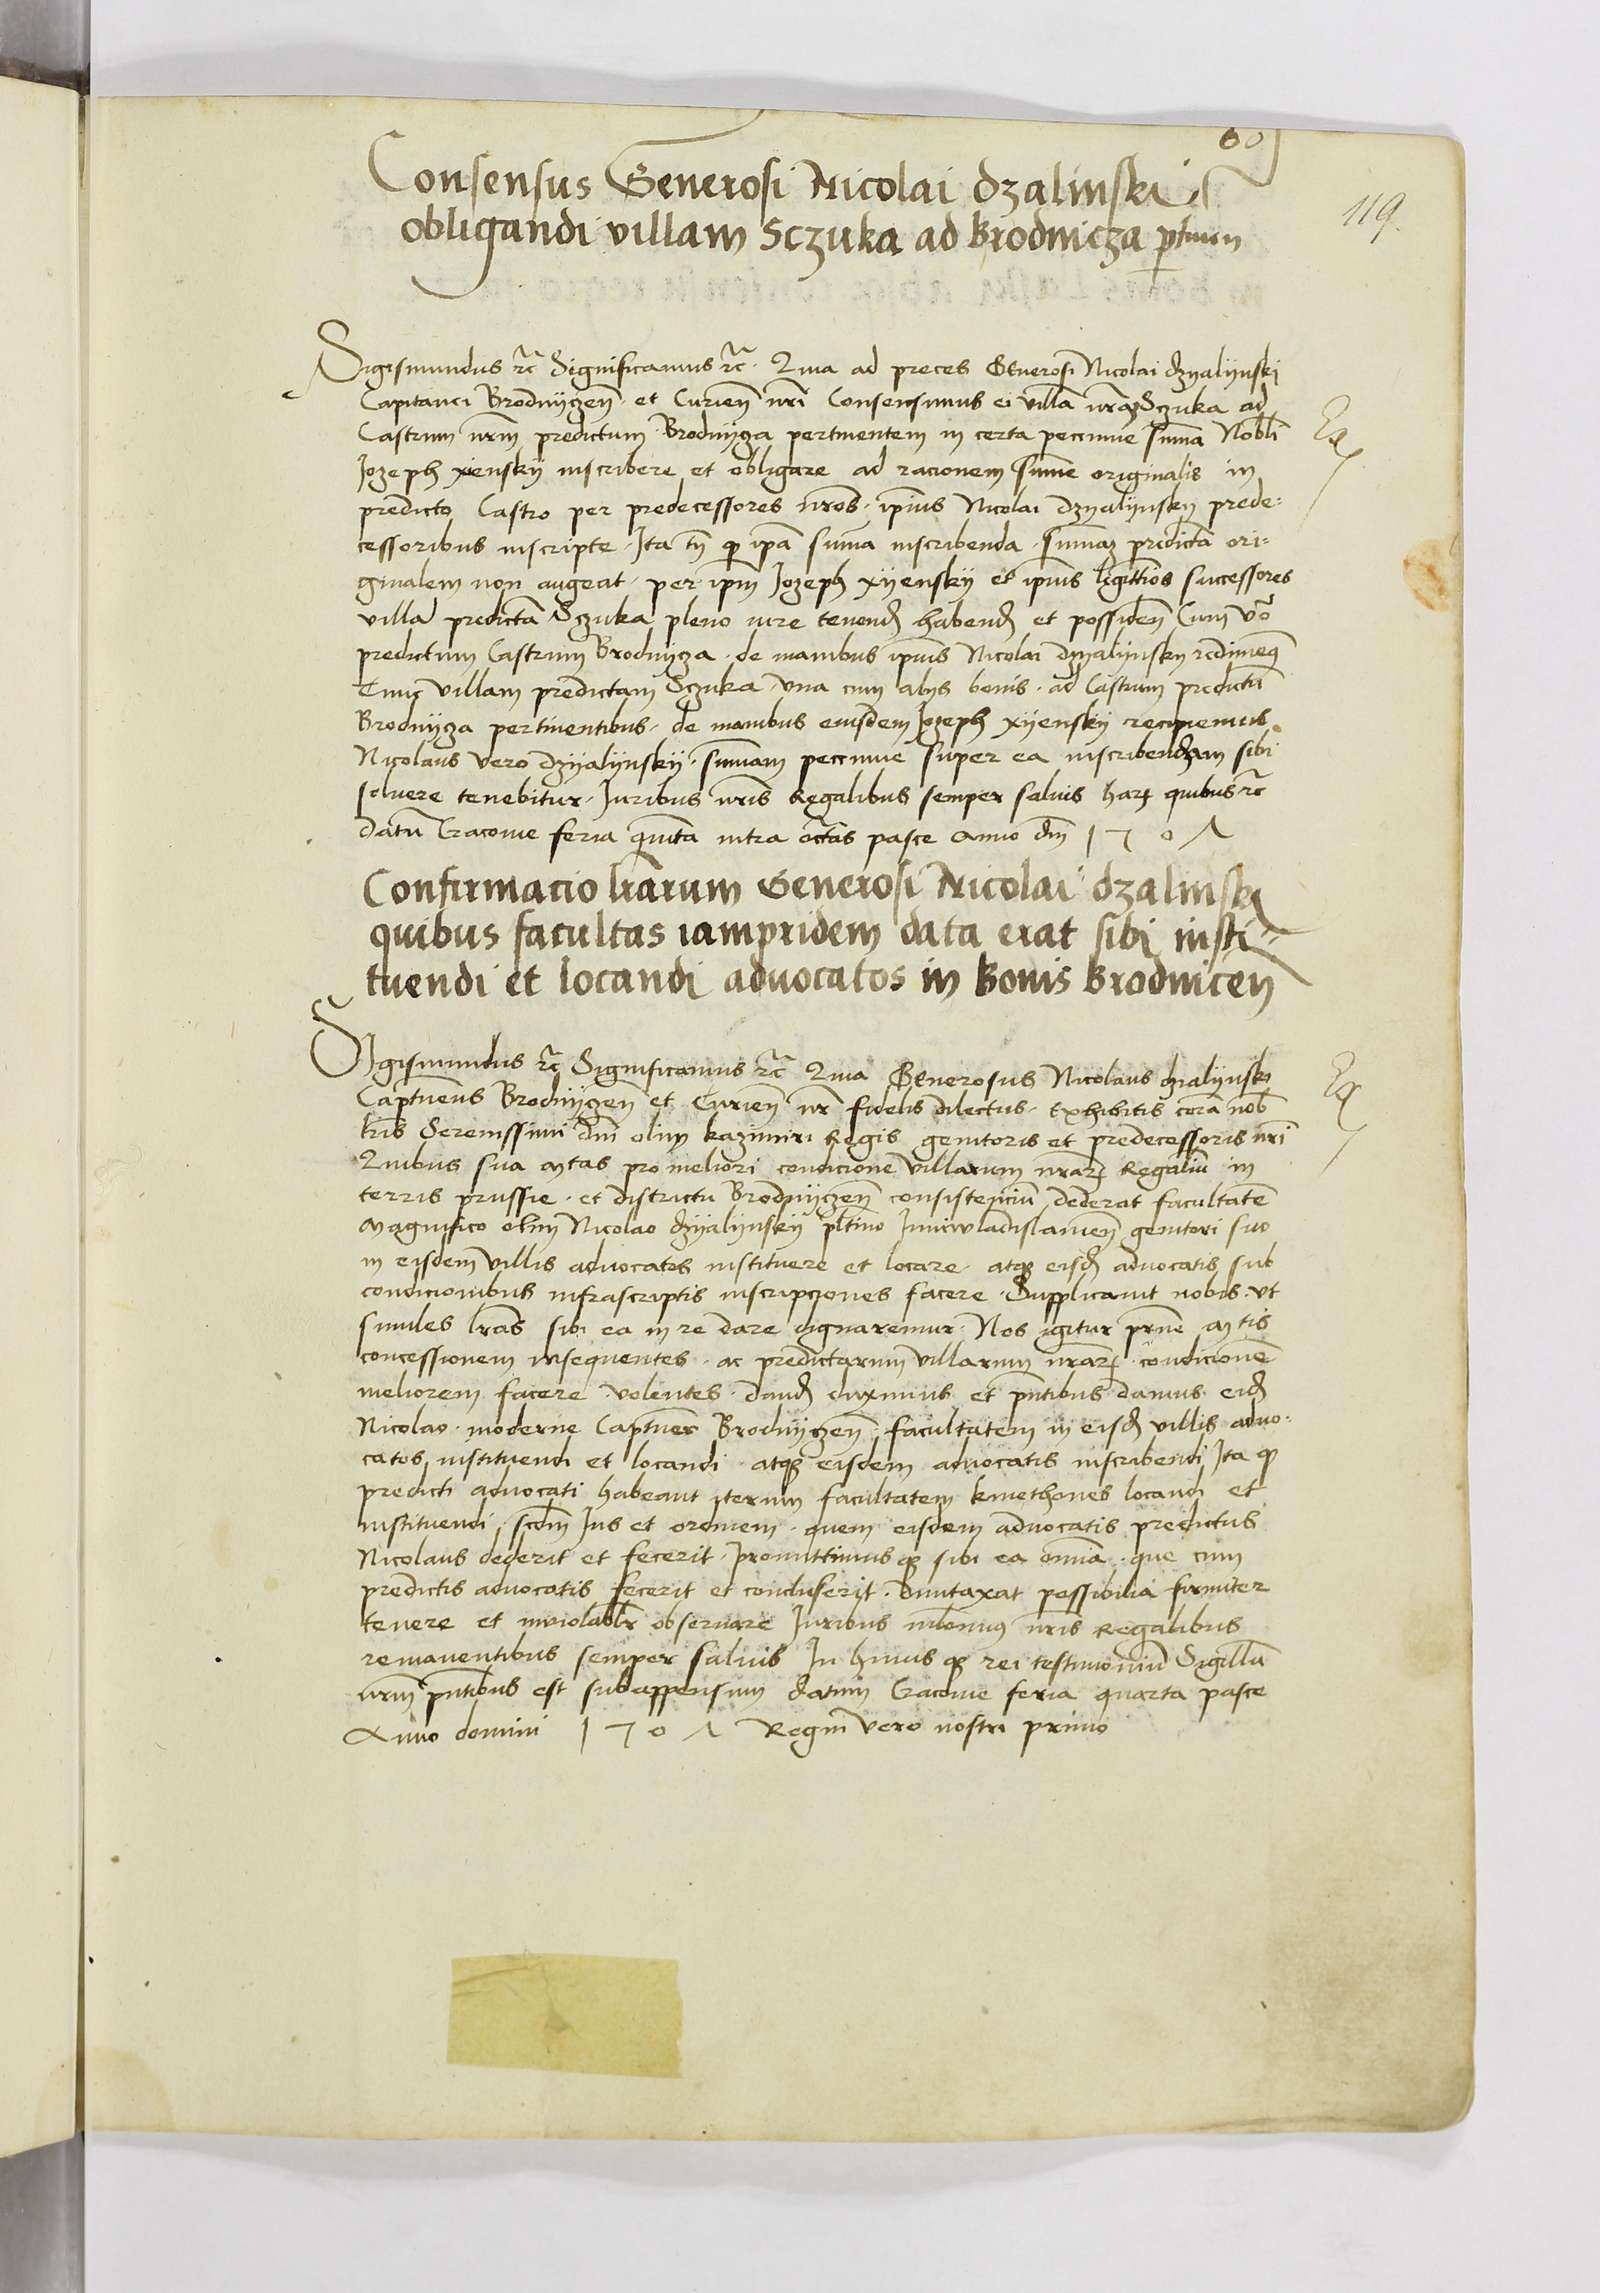 60
119.
Consensus Generosi Nicolai dzalinski
obligandi villam Sczuka ad Brodnicza ptinen
Sigismundus rc Significamus rc. Quia ad preces Generosi Nicolai dzyalijnski
Capitanei Brodnyczen et Curien nri Consensimus ei villa nraz Sczuka ad
Castrum nrm predictum Brodnyza pertinentem in certa pecunie suma Nobli
Jozeph xienskij inscribere et obligare ad racionem summe originalis in
predicto Castro per predecessores nros. ipius Nicolai dzyalijnsky prede:
cessoribus inscripte. Ita tn qp ipa suma inscribenda sumaz predicta ori:
ginalem non augeat. per ipm Jozeph xijenskij et ipius ligittios successores
villa predicta Sczuka pleno iure tenend habend et possiden Cum vo
predictum Castrum Brodnyza. de manibus ipius Nicolai dzyalijnsky redimeq
Tunc villam predictam Sczuka vna cum alijs bonis. ad Castrum predictu
Brodnyza pertinentibus. de manibus eiusdem Jozeph xijensky recipiemus
Nicolaus vero dzyalijnskij. sumam pecunie super ea inscribendam sibi
soluere tenebitur. Iuribus nris Regalibus semper saluis harz quibus rc
datu Cracouie feria quinta intra octas pasce Anno dni 1507
Confirmacio lrarum Generosi Nicolai dzalinski
quibus facultas iampridem data erat sibi insti:
tuendi et locandi aduocatos in Bonis Brodnicen
Sigismundus rc Significamus rc Quia Generosus Nicolaus dzialijnsky
Captneus Brodnyczen et Curien nr fidelis dilectus. Exhibitis cora nob
lris Serenissimi dni olim kazimiri Regis genitoris et predecessoris nri
Quibus sua Mtas pro meliori condicione villarum nrarz Regaliu in
terris prussie. et districtu Brodnyczen consistenciu dederat facultate
Magnifico olim Nicolao dzyalijnskij pltino Iuniwladislauien genitori suo
in eisdem villis aduocatos instituere et locare. atqz eisd aduocatis sub
condicionibus infrascriptis inscripciones facere. Supplicauit nobis vt
similes lras sibi ea in re dare dignaremur. Nos igitur prne Mtis
concessionem insequentes. ac predictarum villarum nrarz condicione
meliorem facere volentes. dand duximus et pntibus damus eid
Nicolao. moderne Captneo Brodnyczen facultatem in eisd villis aduo:
catos instituendi et locandi atqz eisdem aduocatis inscribendi Ita qp
predicti aduocati habeant iterum facultatem kmethones locandi et
instituendi scdm Ius et ordinem. quem eisdem aduocatis predictus
Nicolaus dederit et fecerit. promittimus qz sibi ea omia. que cum
predictis aduocatis fecerit et concluserit. dumtaxat possibilia firmiter
tenere et inuiolablr obseruare Iuribus nilominus nris Regalibus
remanentibus semper saluis In huius qz rei testimoniu Sigillu
nrm pntibus est subappensum datum Cracouie feria quarta pasce
Anno domini 1507 Regni vero nostri primo